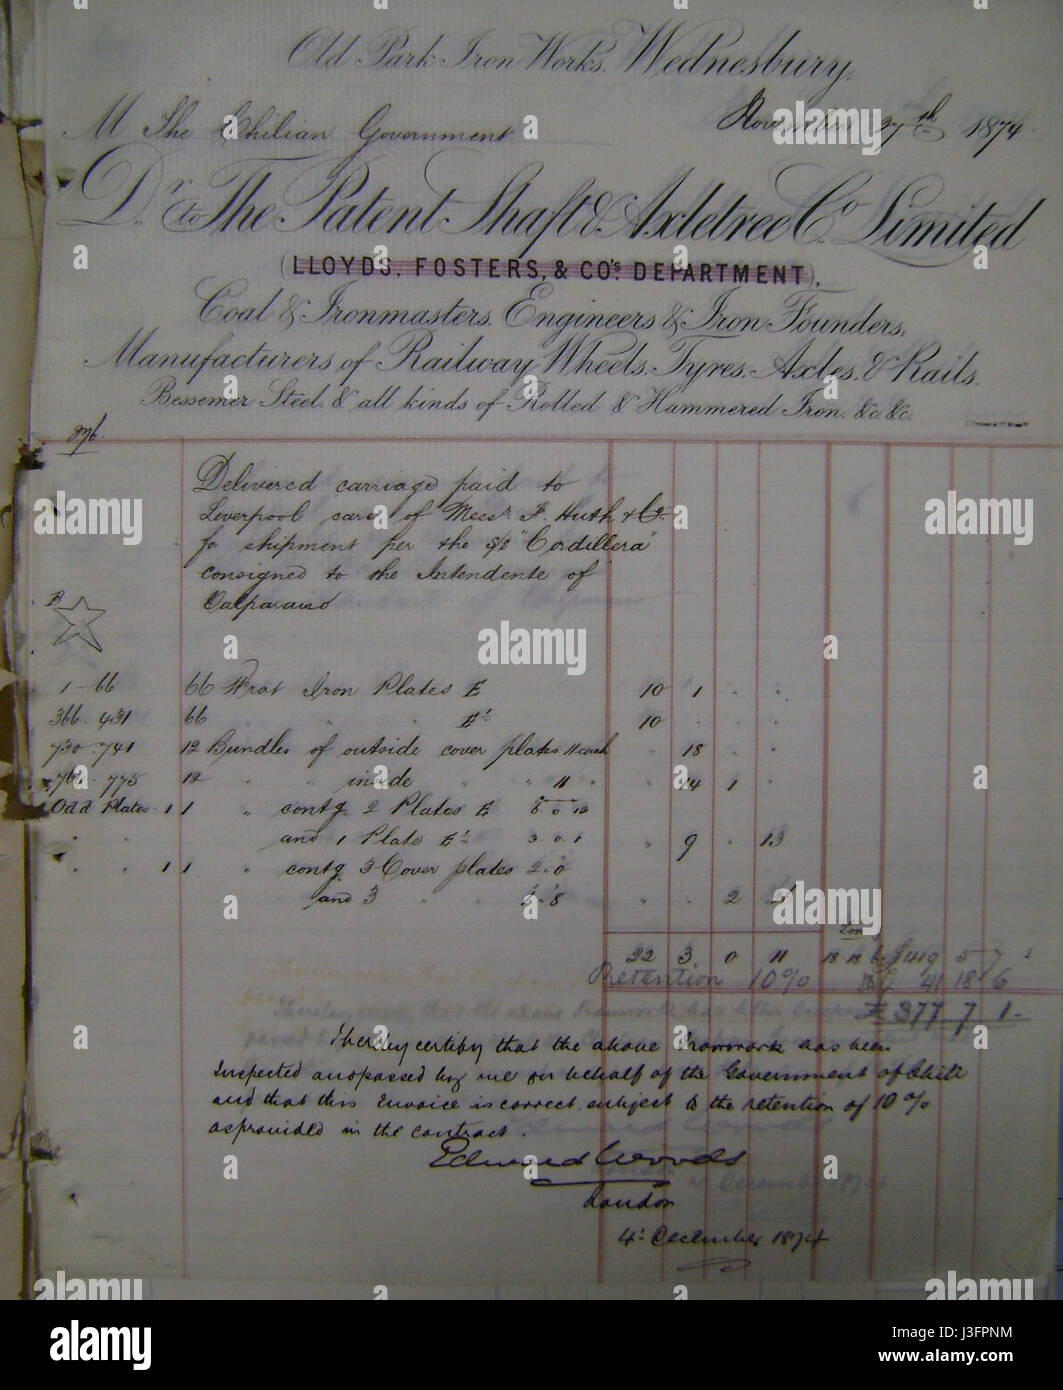 Old Park Iron Works. Wednesbury,
November 27th 1874
M The Chilian Government
Dr. to The Patent Shaft & Axletree Co. Limited
(LLOYDS, FOSTERS, & CO's DEPARTMENT).
Coal & Ironmasters, Engineers & Iron Founders,
Manufacturers of Railway Wheels, Tyres, Axles, & Rails.
Bessemer Steel, & all kinds of Rolled & Hammered Iron. &c. &c.
876.
Delivered carriage paid to
Liverpool care of Messrs F. Huth & Co.
fo shipment per the s/s "Cordillera"
consigned to the Intendente of
Valparaiso
1 - 66 66 Wrot Iron Plates E 10 1 " "
366 . 431 66 " " E' 10 " " "
730 . 741 12 Bundles of outside cover plates 11 each " 18 " "
775 12 " " inside " " 11 " " 14 1 "
Odd Plates . 1 1 " contg 2 Plates E 6 . 0 . 12
and 1 Plate E' 3 . 0 . 1 " 9 " 13
" " 1 1 " contg 3 Cover plates 2 . 0
and 3 " " " " 2
22 3 0 11 £419 5 7
Retention 10% £ 41 18 6
£ 377 7 1
I hereby certify that the above Ironwork has been
Inspected and passed by me on behalf of the Government of Chili
and that this Invoice is correct, subject to the retention of 10%
as provided in the contract.
Edward Woods
London
4: December 1874
a alamy stock photo
alamy
J3FPNM
www.alamy.com